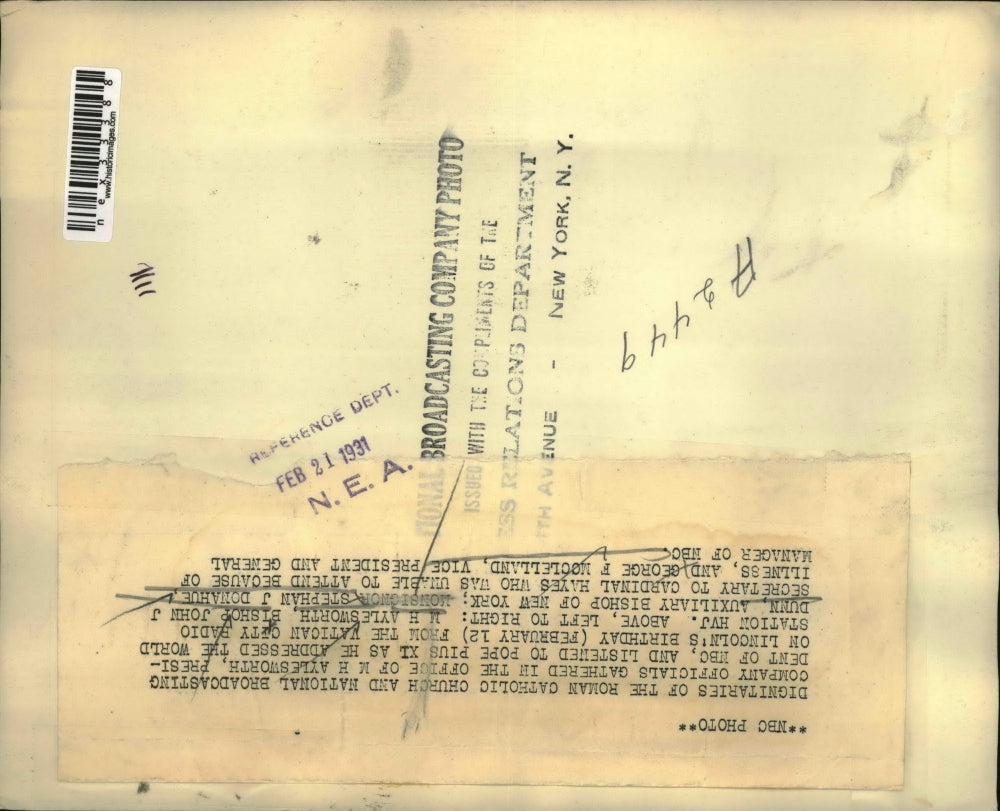 **NBC PHOTO**
DIGNITARIES OF THE ROMAN CATHOLIC CHURCH AND NATIONAL BROADCASTING
COMPANY OFFICIALS GATHERED IN THE OFFICE OF M H AYLESWORTH, PRESI-
DENT OF NBC, AND LISTENED TO POPE PIUS XI AS HE ADDRESSED THE WORLD
ON LINCOLN'S BIRTHDAY (FEBRUARY 12) FROM THE VATICAN CITY RADIO
STATION HVJ. ABOVE, LEFT TO RIGHT: M H AYLESWORTH, BISHOP JOHN J
DUNN, AUXILIARY BISHOP OF NEW YORK; MONSIGNOR STEPHAN J DONAHUE,
SECRETARY TO CARDINAL HAYES WHO WAS UNABLE TO ATTEND BECAUSE OF
ILLNESS, AND GEORGE F MCCLELLAND, VICE PRESIDENT AND GENERAL
MANAGER OF NBC
TIONAL BROADCASTING COMPANY PHOTO
ISSUED WITH THE COMPLIMENTS OF THE
ESS RELATIONS DEPARTMENT
TH AVENUE - NEW YORK, N. Y.
REFERENCE DEPT.
FEB 21 1931
N. E. A.
A
2449
nex33388
www.historicimages.com